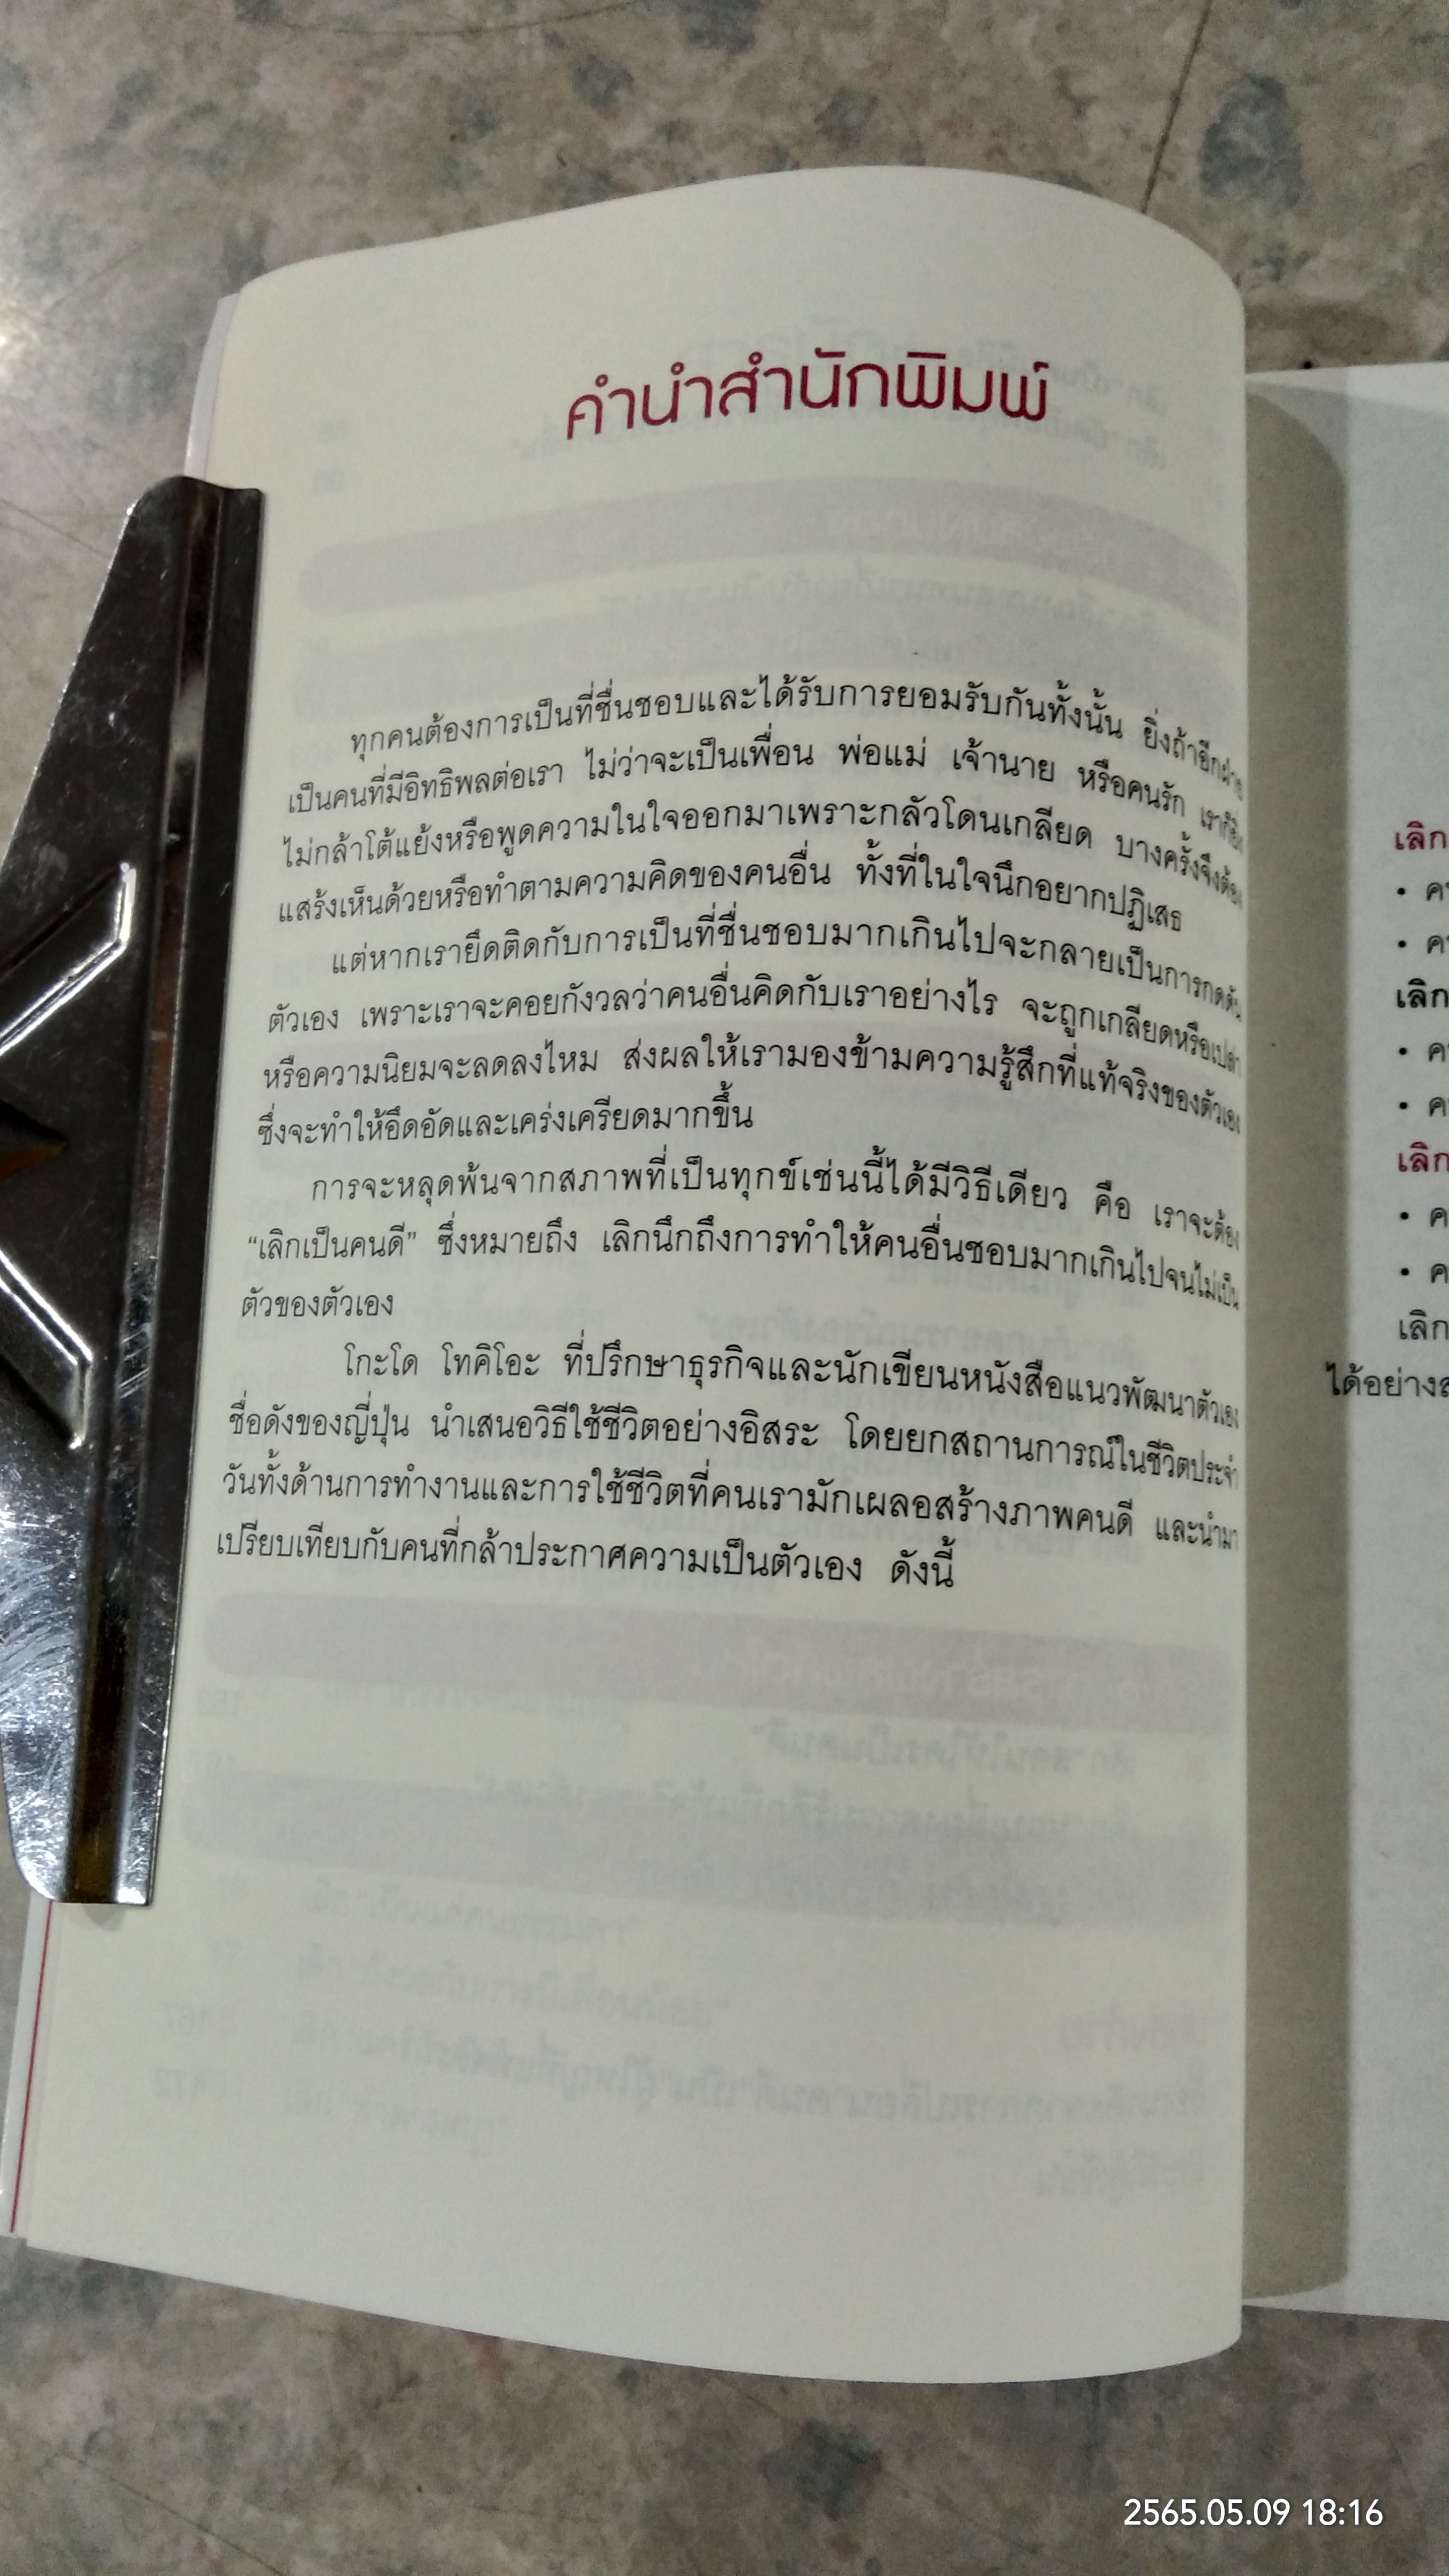 คำนำสำนักพิมพ์
ทุกคนต้องการเป็นที่ชื่นชอบและได้รับการยอมรับกันทั้งนั้น ยิ่งถ้าอีกฝ่าย
เป็นคนที่มีอิทธิพลต่อเรา ไม่ว่าจะเป็นเพื่อน พ่อแม่ เจ้านาย หรือคนรัก เราก็ยิ่ง
ไม่กล้าโต้แย้งหรือพูดความในใจออกมาเพราะกลัวโดนเกลียด บางครั้งจึงต้อง
แสร้งเห็นด้วยหรือทำตามความคิดของคนอื่น ทั้งที่ในใจนึกอยากปฏิเสธ
แต่หากเรายึดติดกับการเป็นที่ชื่นชอบมากเกินไปจะกลายเป็นการกดดัน
ตัวเอง เพราะเราจะคอยกังวลว่าคนอื่นคิดกับเราอย่างไร จะถูกเกลียดหรือเปล่า
หรือความนิยมจะลดลงไหม ส่งผลให้เรามองข้ามความรู้สึกที่แท้จริงของตัวเอง
ซึ่งจะทำให้อึดอัดและเคร่งเครียดมากขึ้น
การจะหลุดพ้นจากสภาพที่เป็นทุกข์เช่นนี้ได้มีวิธีเดียว คือ เราจะต้อง
“เลิกเป็นคนดี” ซึ่งหมายถึง เลิกนึกถึงการทำให้คนอื่นชอบมากเกินไปจนไม่เป็น
ตัวของตัวเอง
โกะโด โทคิโอะ ที่ปรึกษาธุรกิจและนักเขียนหนังสือแนวพัฒนาตัวเอง
ชื่อดังของญี่ปุ่น นำเสนอวิธีใช้ชีวิตอย่างอิสระ โดยยกสถานการณ์ในชีวิตประจำ
วันทั้งด้านการทำงานและการใช้ชีวิตที่คนเรามักเผลอสร้างภาพคนดี และนำมา
เปรียบเทียบกับคนที่กล้าประกาศความเป็นตัวเอง ดังนี้
เลิก
เลิก
เลิก
เลิก
ได้อย่าง
2565.05.09 18:16